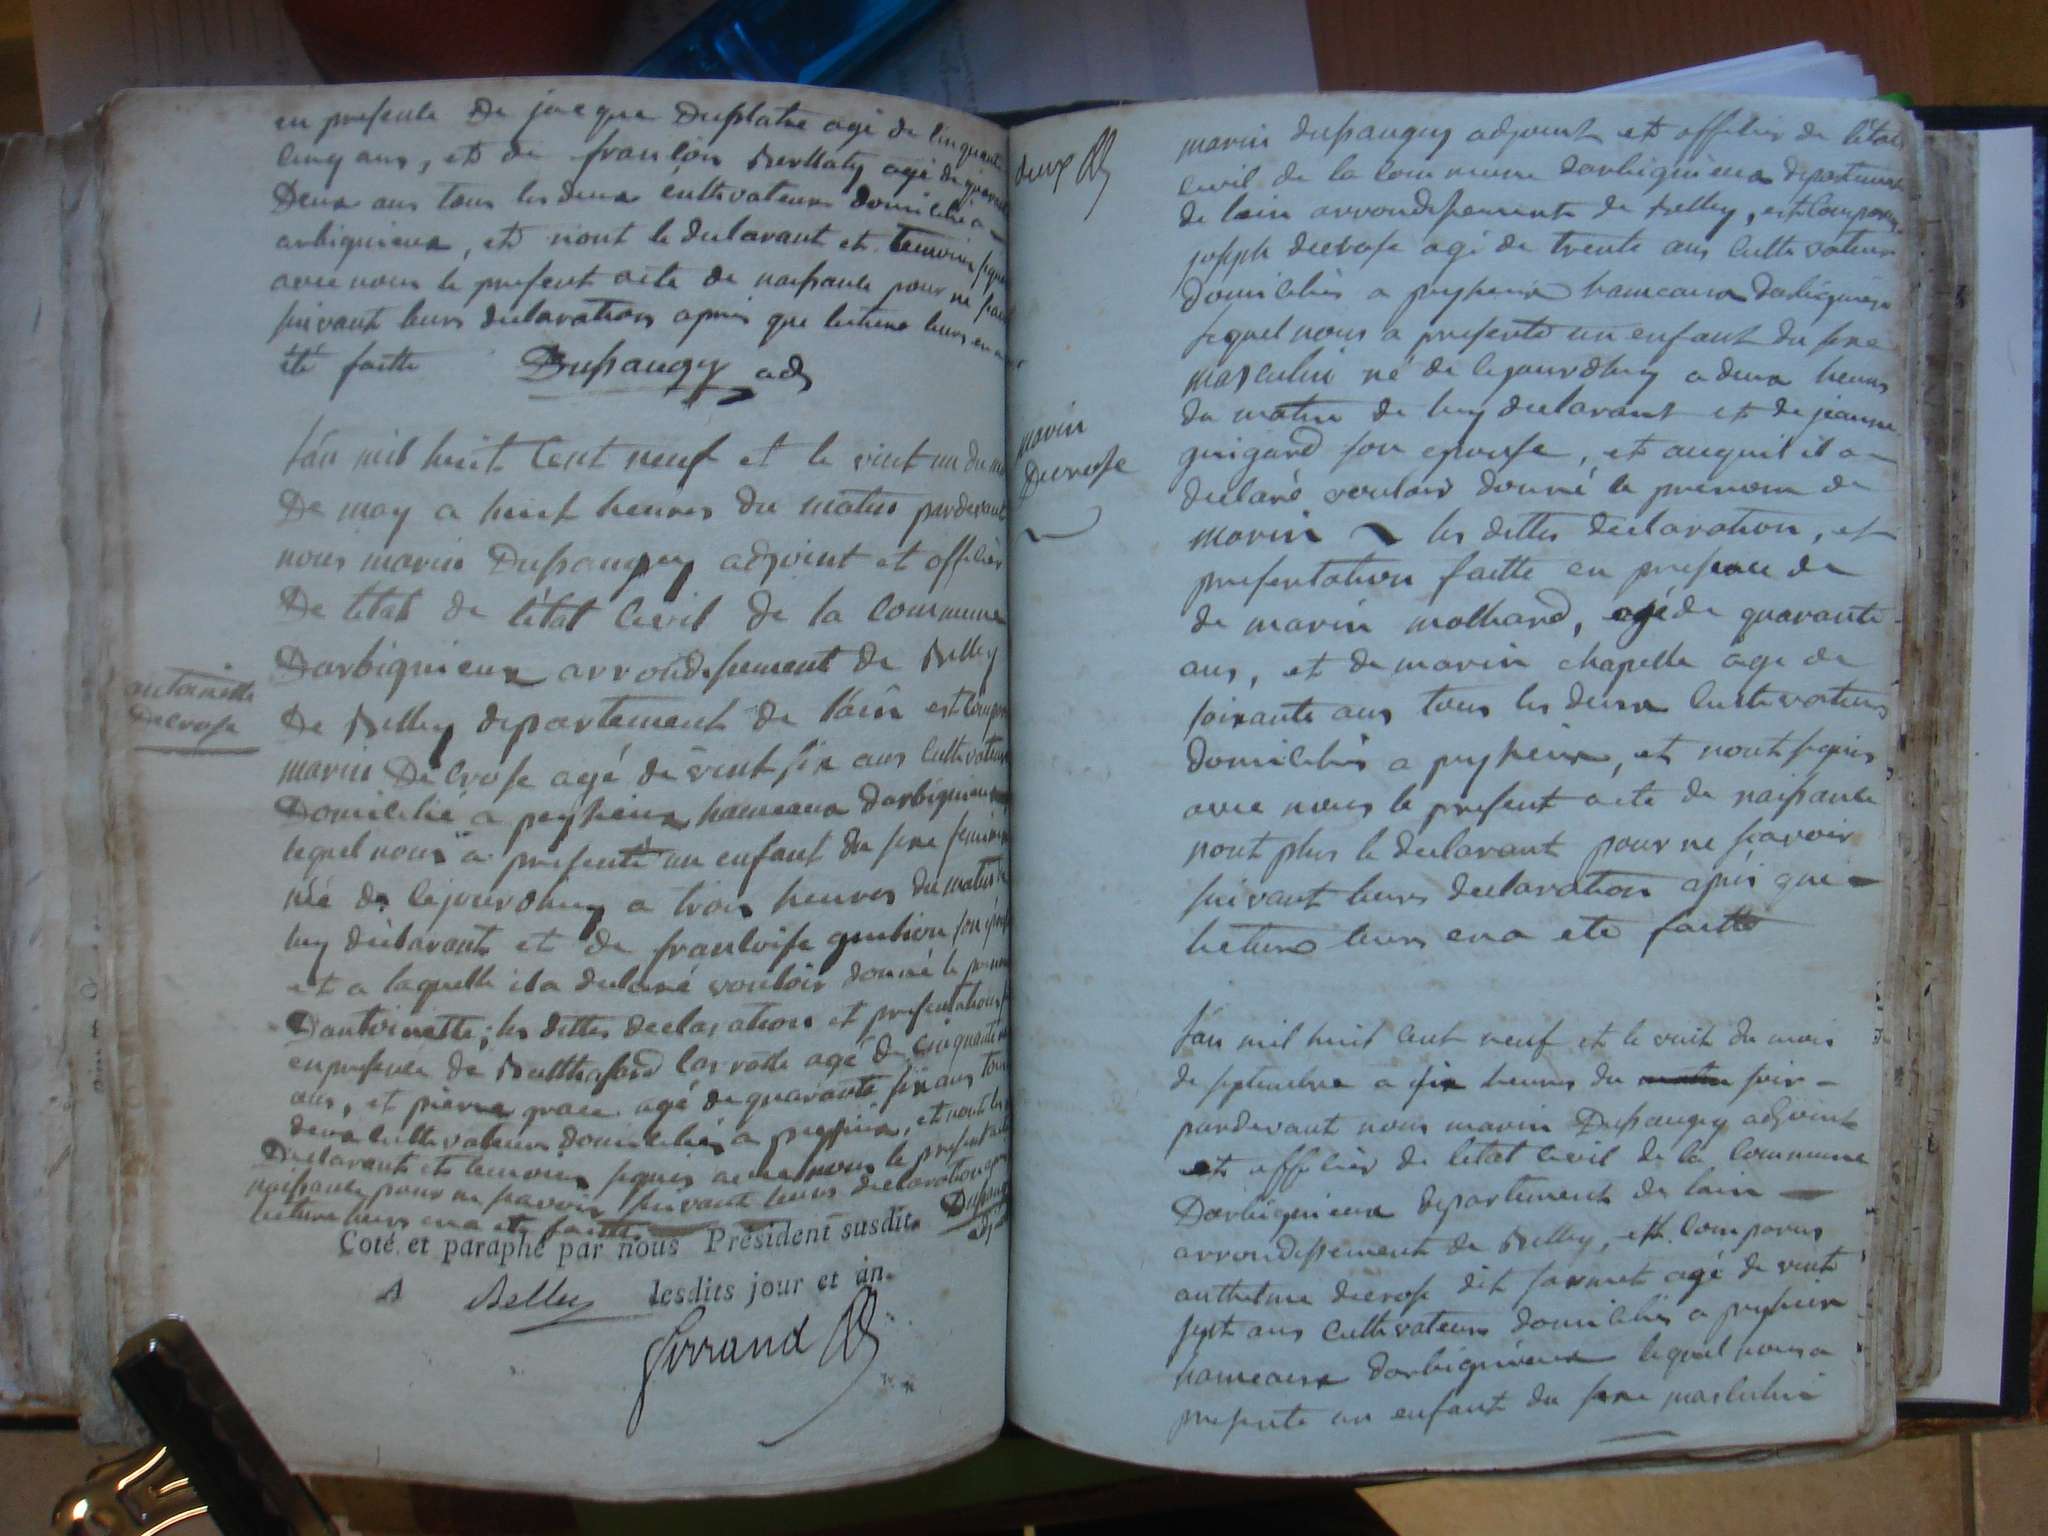 en presente de jacque Duplatre agé de cinquante
cinq ans, et de françois Berthaty agé de quarante
Deux ans tous les deux cultivateurs domicilié a
arbignieux, et n'ont le declarant et temoins signé
avec nous le present acte de naissance pour ne
suivant leurs declaration apres que lecture leurs en a
été faitte Dupaugey adj
l'an mil huit cent neuf et le vint un du
De may a huit heures du matin pardevant
nous marin Dupaugey adjoint et officier
De letat de l'état Civil de la commune
Darbignieux arrondissement de Belley
De Belley departement de l'ain est
marin Decrose agé de vint six ans cultivateur
Domicilié a peyzieux hameaux darbignieux
lequel nous a presenté un enfant du sexe feminin
née de cejourdhuy a trois heures du matin
luy declarant et de francoise son
et a laquelle il a declaré vouloir donné le
Dantoinette, les dittes declaration et presentation
en presence de Balthasard agé de cinquante
ans, et pierre grace agé de quarante six ans tous
deux cultivateurs domiciliés a peyzieux, et n'ont
Declarant et temoins signés avec nous le present
naissance pour ne scavoir suivant leurs declaration
lecture leurs en a eté faitte
antoinette
Decrose
Coté et paraphé par nous Président susdit
A Belley lesdits jour et an.
Ferrand
deux
marin Dupaugey adjoint et officier de l'état
civil de la commune darbignieux departement
de lain arrondissement de belley, est comparu
joseph decrose agé de trente ans cultivateur
domiciliés a peyzieux hameaux darbignieux
lequel nous a presenté un enfant du sexe
masculin né de cejourdhuy a deux heures
du matin de luy declarant et de jeanne
guigard son epouse, et auquil il a
declaré vouloir donné le prenom de
marin les dittes declaration, et
presentation faitte en presence de
de marin molhard, agé de quarante
ans, et de marin chapelle age de
soixante ans tous les deux cultivateurs
domiciliés a peyzieux, et n'ont signés
avec nous le present acte de naissance
nont plus le declarant pour ne scavoir
suivant leurs declaration après que
lecture leurs en a eté faitte
marin
Decrose
l'an mil huit cent neuf et le vint du mois
de septembre a six heures du soir
pardevant nous marin Dupaugey adjoint
et officier de létat civil de la commune
Darbignieux departement de lain
arrondissement de Belley, est comparus
anthelme decrose dit agé de vint
sept ans cultivateurs domiciliés a peyzieu
hameaux darbignieux lequel nous a
presenté un enfant du sexe masculin